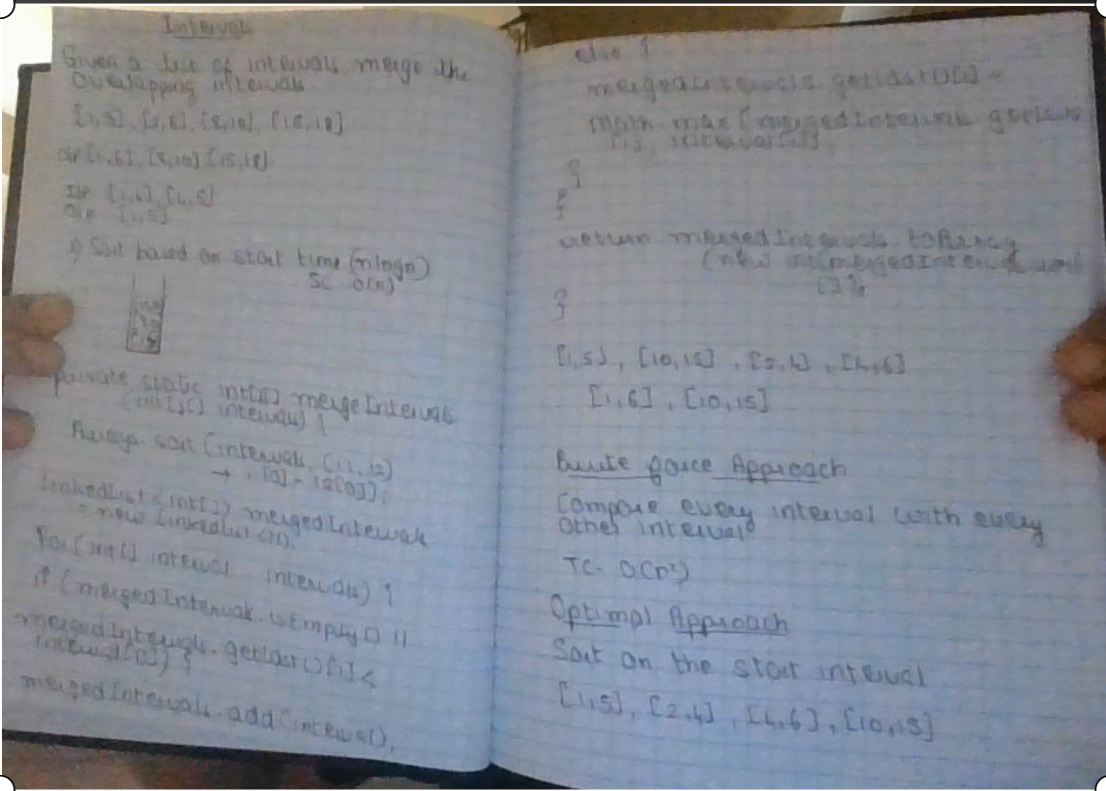 Intervals
Given a list of intervals merge the
Overlapping intervals
[1,3], [2,6], [8,10], [15,18]
O/P [1,6], [8,10] [15,18]
I/P [1,4], [4,5]
O/P [1,5]
1) Sort based on start time (nlogn)
SC O(n)
private static int[][] mergeIntervals
(int[][] intervals) {
Arrays.sort (intervals, (i1, i2)
→ i1[0] - i2[0]);
LinkedList<int[]> mergedIntervals
= new LinkedList<>();
for (int[] interval : intervals) {
if (mergedIntervals.isEmpty() ||
mergedIntervals.getLast()[1] <
interval[0]) {
mergedIntervals.add(interval);
else {
mergedIntervals.getLast()[1] =
Math.max (mergedIntervals.getLast()
[1], interval[1]);
}
}
return mergedIntervals.toArray
(new int[mergedIntervals
[]);
}
[1,5], [10,15], [2,4], [4,6]
[1,6], [10,15]
Brute force Approach
Compare every interval with every
other interval
TC- O(n²)
Optimal Approach
Sort on the start interval
[1,5], [2,4], [4,6], [10,15]